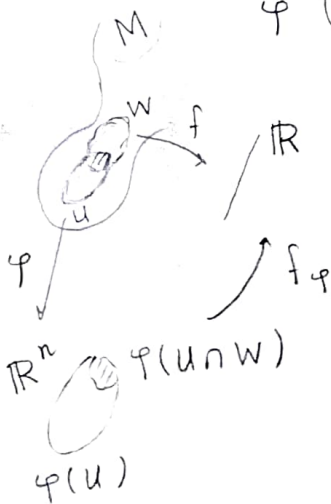 φ (
M
W
f
ℝ
U
φ
f φ
ℝⁿ
φ(U∩W)
φ(U)